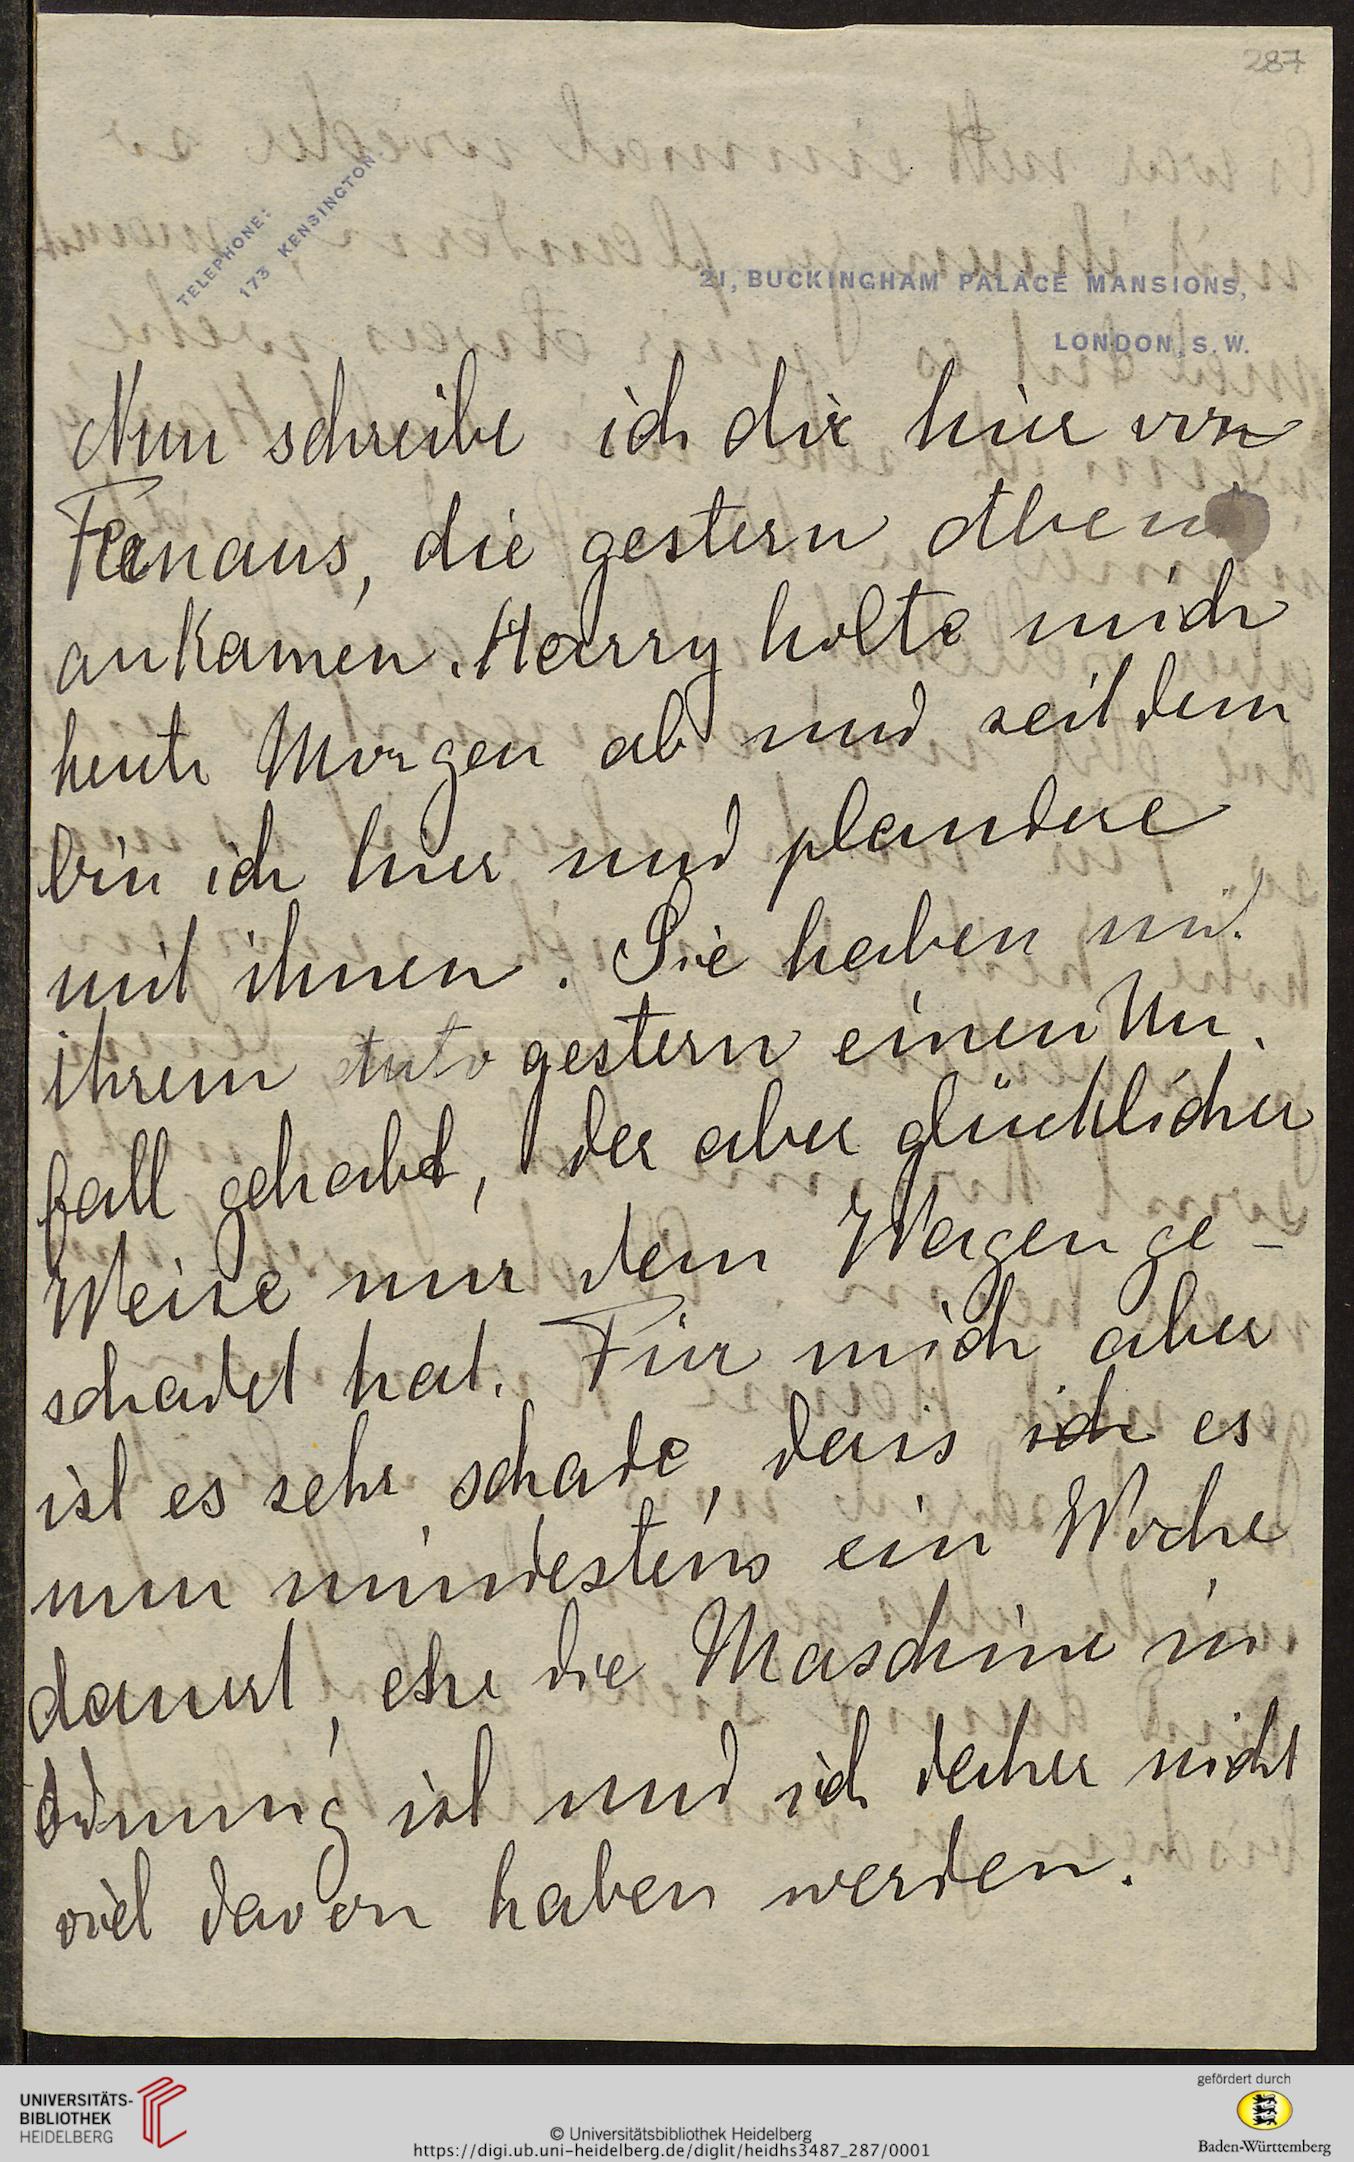 287
TELEPHONE:
173 KENSINGTON.
21, BUCKINGHAM PALACE MANSIONS,
LONDON, S. W.
Nun schreibe ich dir hier von
die gestern Abend
ankamen. Harry holte mich
heute Morgen ab und seitdem
bin ich hier und plaudere
mit ihnen. Sie haben mit
ihrem Auto gestern einen Un-
fall gehabt, der aber glücklicher
Weise nur dem Wagen ge-
schadet hat. Für mich aber
ist es sehr schade, dass ich es
nun mindestens ein Woche
dauert, ehe die Maschine in
Ordnung ist und ich daher nicht
viel davon haben werden.
UNIVERSITÄTS-
BIBLIOTHEK
HEIDELBERG
© Universitätsbibliothek Heidelberg
https://digi.ub.uni-heidelberg.de/diglit/heidhs3487_287/0001
gefördert durch
Baden-Württemberg